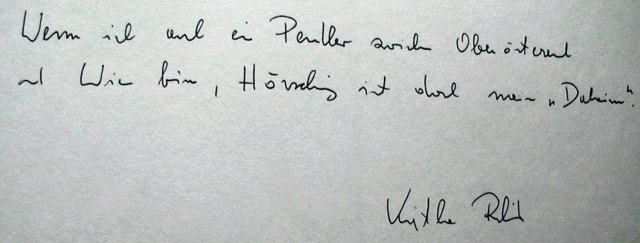 Wenn ich auch ein Pendler zwischen Oberösterreich
und Wien bin, Hörsching ist doch mein „Daheim“.